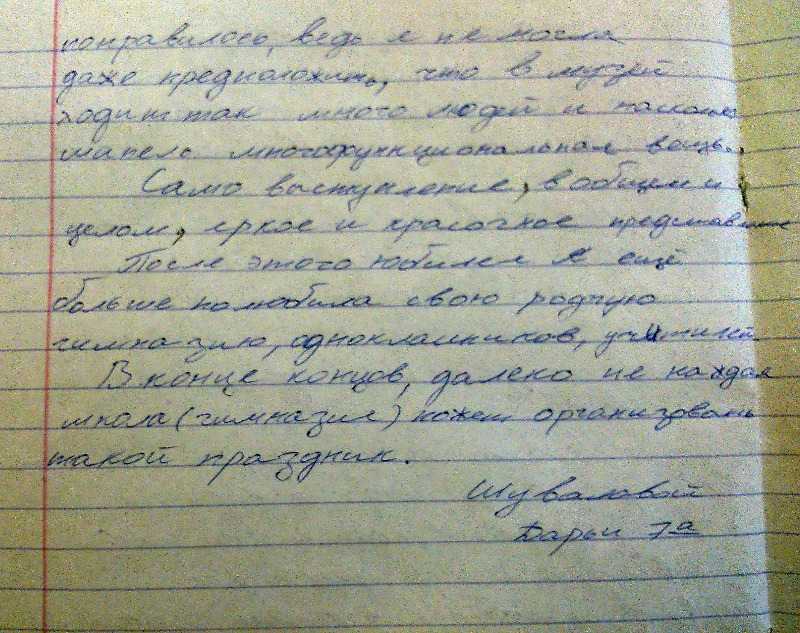 понравилось, ведь я не могла
даже предположить, что в музей
ходит так много людей и насколько
многофункциональная вещь.
Само выступление, в общем и
целом, яркое и красочное представление
После этого юбилея я ещё
больше полюбила свою родную
гимназию, одноклассников, учителей
В конце концов, далеко не каждая
школа (гимназия) может организовать
такой праздник.
Шуваловой
Дарьи 7а